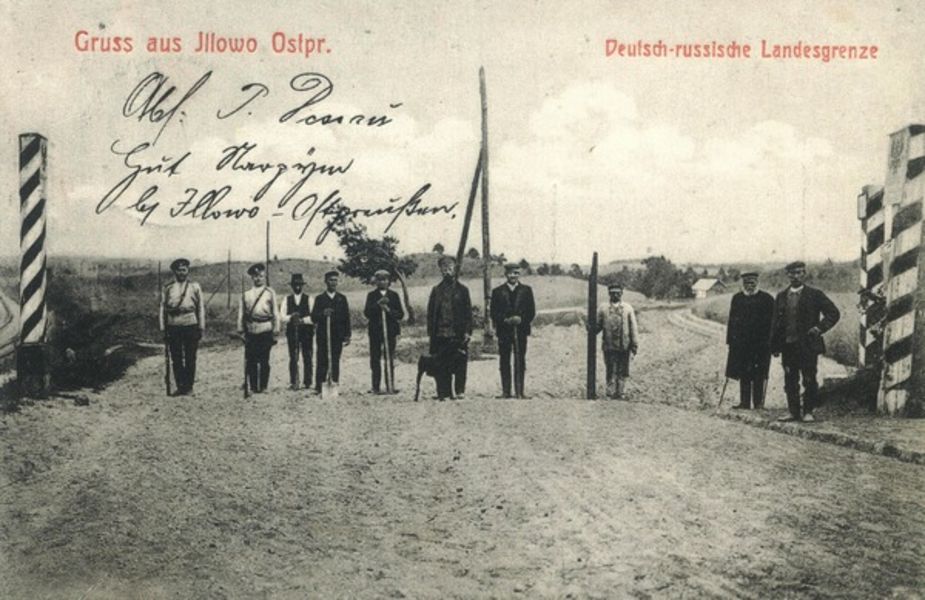 Gruss aus Jllowo Ostpr.
Deutsch-russische Landesgrenze
Abs: P.
Gut Narzym
by Illowo - Ostpreußen.